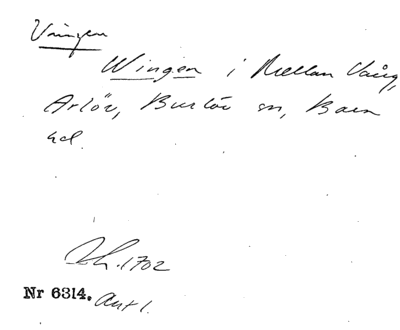 Vingen
Wingen i Mellan Vång,
Arlöv, Burlöv sn, Bara
hd.
Lh. 1702
Nr 6314. Avs 1.